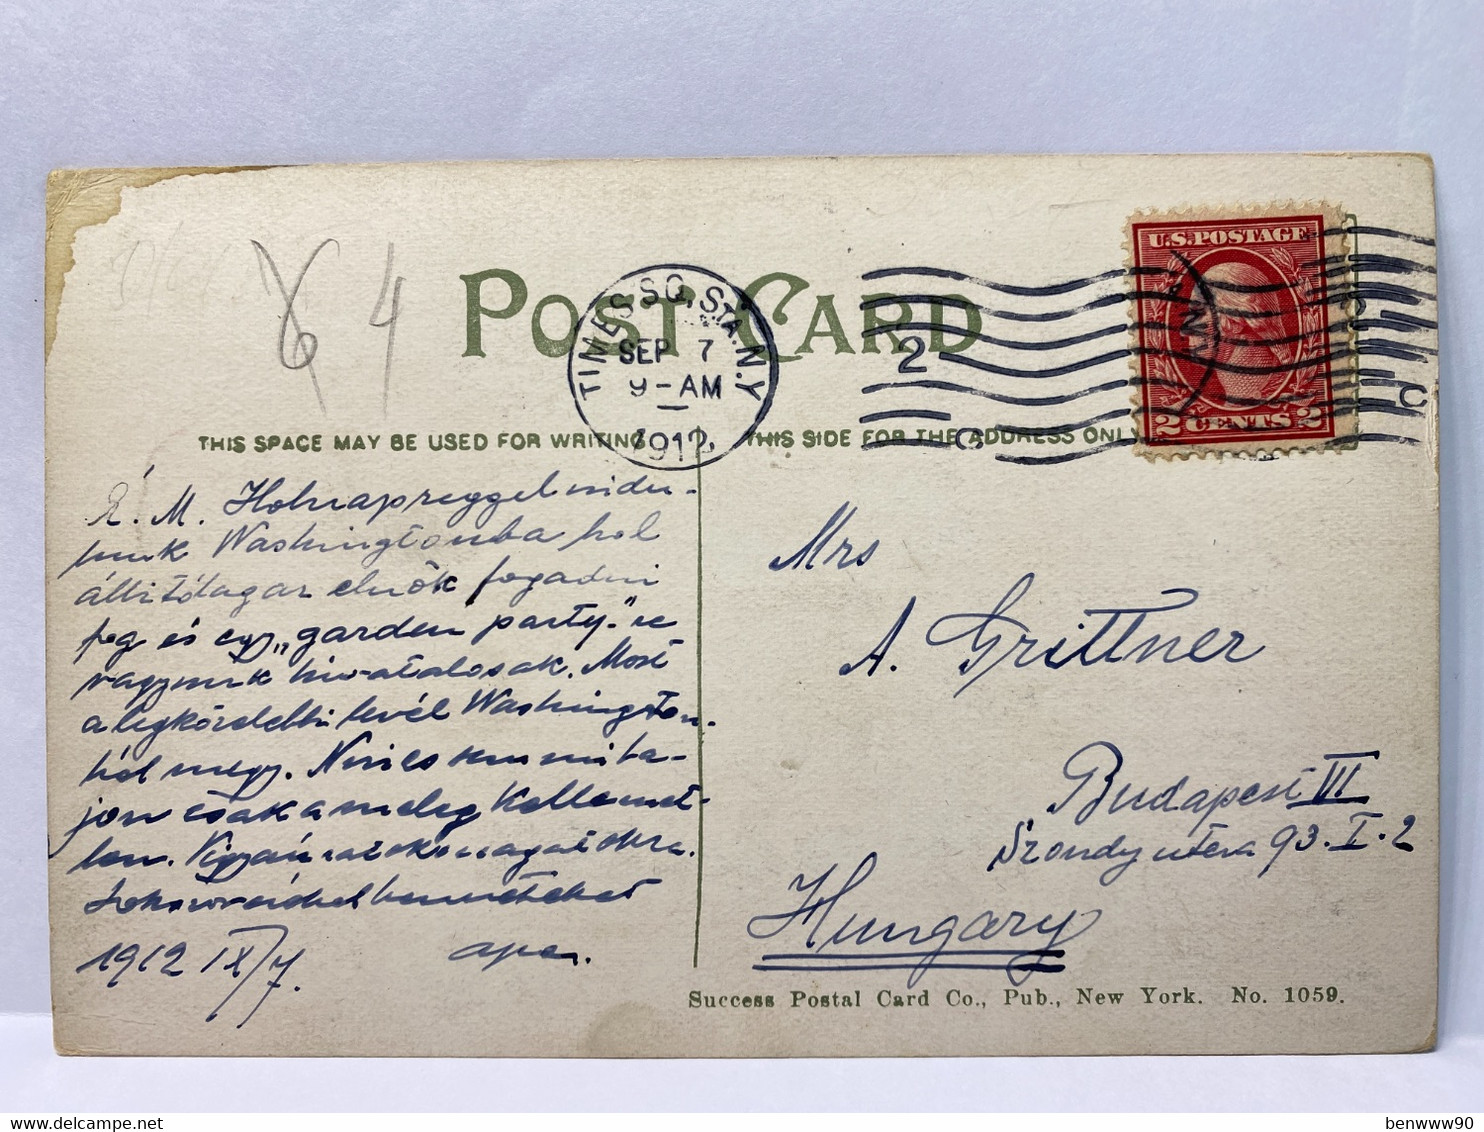 6 4
POST CARD
TIMES SQ. STA. N.Y.
SEP 7
9-AM
1912
U.S. POSTAGE
2 CENTS 2
N.Y.
2
C
C
THIS SPACE MAY BE USED FOR WRITING
THIS SIDE FOR THE ADDRESS ONLY
É. M. Holnap reggel indu-
lunk Washingtonba hol
állitólagos elnök fogadni
fog és egy „garden party"-re
vagyunk hivatalosak. Most
a legközelebbi levél Washington-
ból megy. Nincs semmi ba-
jom csak a meleg kellemet-
len. Vigyázzatok magatokra.
Sokszor csókol benneteket
1912 IX/7. apa.
Mrs
A. Grittner
Budapest VI
Szondy utca 93. I. 2
Hungary
Success Postal Card Co., Pub., New York. No. 1059.
benwww90